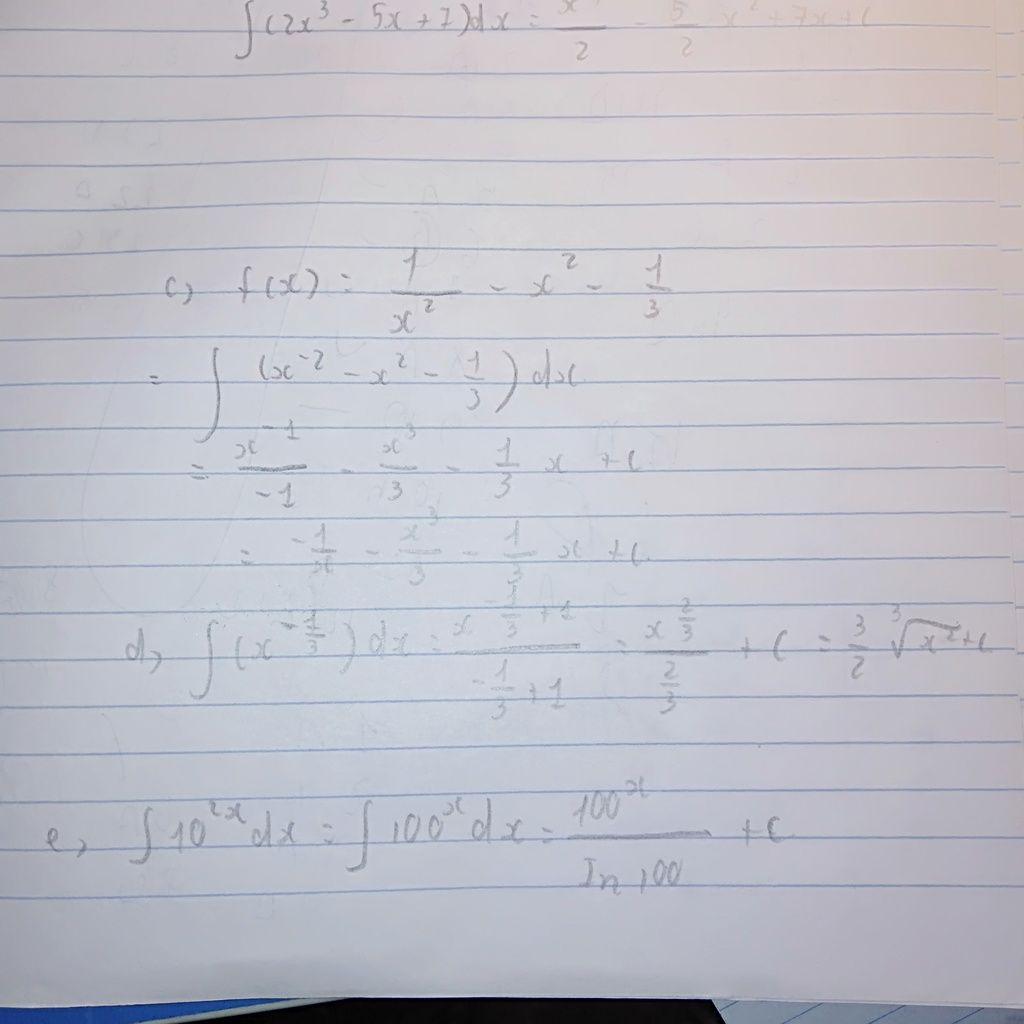 ∫(2x³ - 5x + 7)dx = x/2 - 5/2 x² + 7x + C
c, f(x) = 1/x² - x² - 1/3
= ∫ (x⁻² - x² - 1/3) dx
= x⁻¹/-1 - x³/3 - 1/3 x + C
= -1/x - x³/3 - 1/3 x + C
d, ∫(x^(-1/3)) dx = x^(-1/3 + 1)/(-1/3 + 1) = x^(2/3)/(2/3) + C = 3/2 ∛x² + C
e, ∫10^(2x) dx = ∫100^x dx = 100^x/In 100 + C